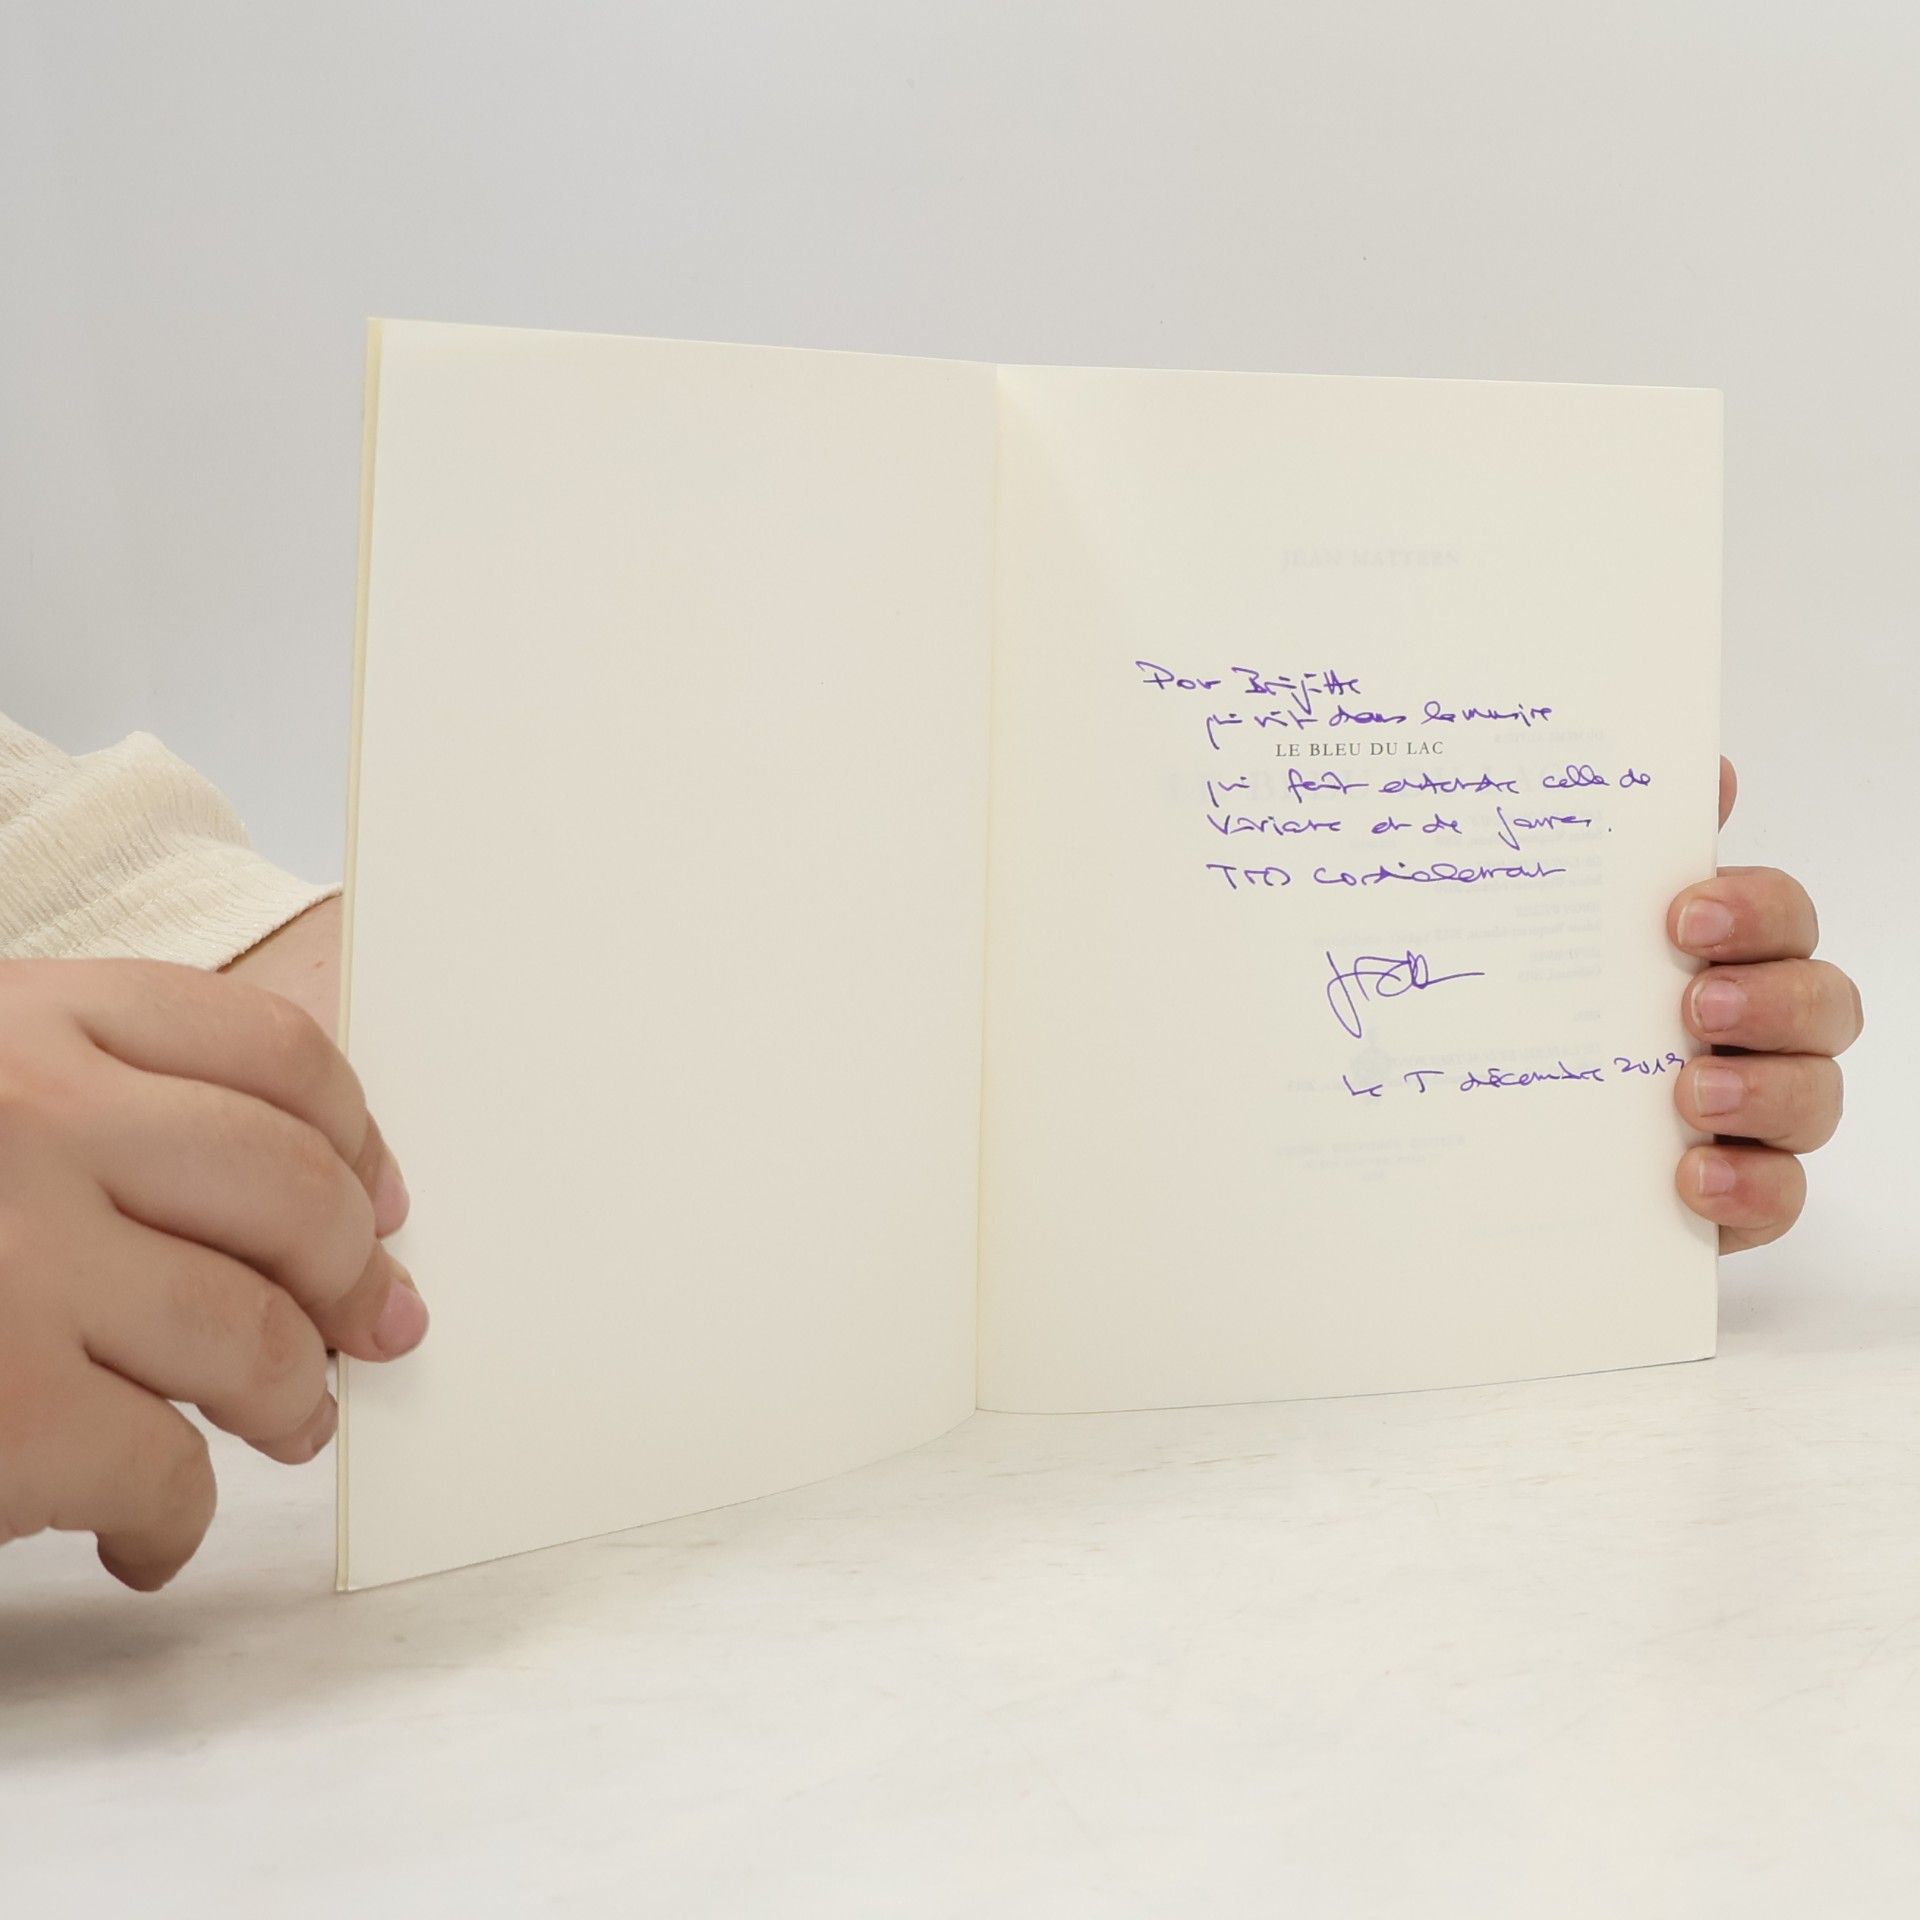 JEAN MATTERN
Pour Brigitte
qui vit dans la musique
LE BLEU DU LAC
qui fait entendre celle de
Viviane et de James.
Très cordialement
Le 5 décembre 2019